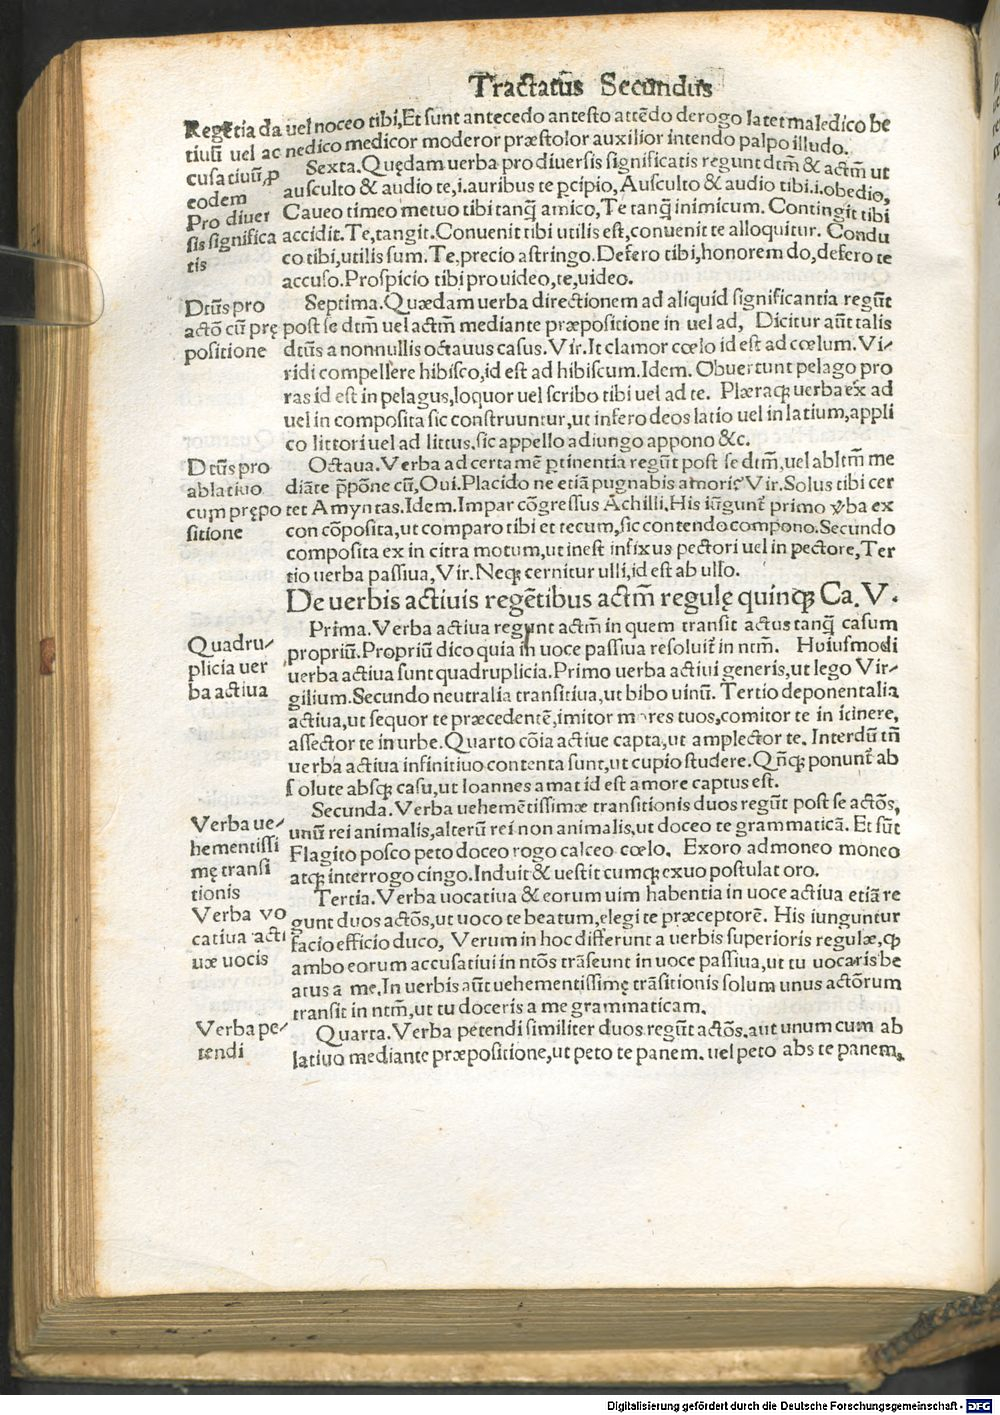 Tractatus Secundus
Regẽtia da
tiuũ uel ac
cusatiuũ, ꝓ
eodem
Pro diuer
sis significa
tis
uel noceo tibi, Et sunt antecedo antesto attẽdo derogo latet maledico be
nedico medicor moderor præstolor auxilior intendo palpo illudo.
Sexta. Quędam uerba pro diuersis significatis regunt dtm̃ & actm̃ ut
ausculto & audio te, .i. auribus te ꝑcipio, Ausculto & audio tibi .i. obedio,
Caueo timeo metuo tibi tanq̃ amico, Te tanq̃ inimicum. Contingit tibi
accidit. Te, tangit. Conuenit tibi utilis est, conuenit te alloquitur. Condu
co tibi, utilis sum. Te, precio astringo. Defero tibi, honorem do, defero te
accuso. Prospicio tibi prouideo, te, uideo.
Dtũs pro
actõ cũ prę
positione
Septima. Quædam uerba directionem ad aliquid significantia regũt
post se dtm̃ uel actm̃ mediante præpositione in uel ad, Dicitur aũt talis
dtũs a nonnullis octauus casus. Vir. It clamor cœlo id est ad cœlum. Vi⸗
ridi compellere hibisco, id est ad hibiscum. Idem. Obuertunt pelago pro
ras id est in pelagus, loquor uel scribo tibi uel ad te. Plæraq; uerba ex ad
uel in composita sic construuntur, ut infero deos latio uel in latium, appli
co littori uel ad littus, sic appello adiungo appono &c.
Dtũs pro
ablatiuo
cum prępo
sitione
Octaua. Verba ad certamẽ ꝑtinentia regũt post se dtm̃, uel abltm̃ me
diãte p̃põne cũ, Oui. Placido ne etiã pugnabis amori? Vir. Solus tibi cer
tet Amyntas. Idem. Impar cõgressus Achilli. His iũgunt̃ primo v̾ba ex
con cõposita, ut comparo tibi et tecum, sic contendo compono. Secundo
composita ex in citra motum, ut inest infixus pectori uel in pectore, Ter
tio uerba passiua, Vir. Neq; cernitur ulli, id est ab ullo.
De uerbis actiuis regẽtibus actm̃ regulę quinq; Ca. V.
Quadru⸗
plicia uer
ba actiua
Prima. Verba actiua regunt actm̃ in quem transit actus tanq̃ casum
propriũ. Propriũ dico quia in uoce passiua resoluit̃ in ntm̃. Huiusmodi
uerba actiua sunt quadruplicia. Primo uerba actiui generis, ut lego Vir⸗
gilium. Secundo neutralia transitiua, ut bibo uinũ. Tertio deponentalia
actiua, ut sequor te præcedentẽ, imitor mores tuos, comitor te in itinere,
assector te in urbe. Quarto cõia actiue capta, ut amplector te. Interdũ tñ
uerba actiua infinitiuo contenta sunt, ut cupio studere. Qñq; ponunt̃ ab
solute absq; casu, ut Ioannes amat id est amore captus est.
Verba ue⸗
hementissi
mę transi
tionis
Secunda. Verba uehemẽtissimæ transitionis duos regũt post se actõs,
unũ rei animalis, alterũ rei non animalis, ut doceo te grammaticã. Et sũt
Flagito posco peto doceo rogo calceo cœlo. Exoro admoneo moneo
atq; interrogo cingo. Induit & uestit cumq; exuo postulat oro.
Verba vo
catiua acti
uæ uocis
Tertia. Verba uocatiua & eorum uim habentia in uoce actiua etiã re
gunt duos actõs, ut uoco te beatum, elegi te præceptorẽ. His iunguntur
facio efficio duco, Verum in hoc differunt a uerbis superioris regulæ, ꝙ
ambo eorum accusatiui in ntõs trãseunt in uoce passiua, ut tu uocaris be
atus a me. In uerbis aũt uehementissimę trãsitionis solum unus actõrum
transit in ntm̃, ut tu doceris a me grammaticam.
Verba pe⸗
tendi
Quarta. Verba petendi similiter duos regũt actõs. aut unum cum ab
latiuo mediante præpositione, ut peto te panem. uel peto abs te panem,
Digitalisierung gefördert durch die Deutsche Forschungsgemeinschaft - DFG